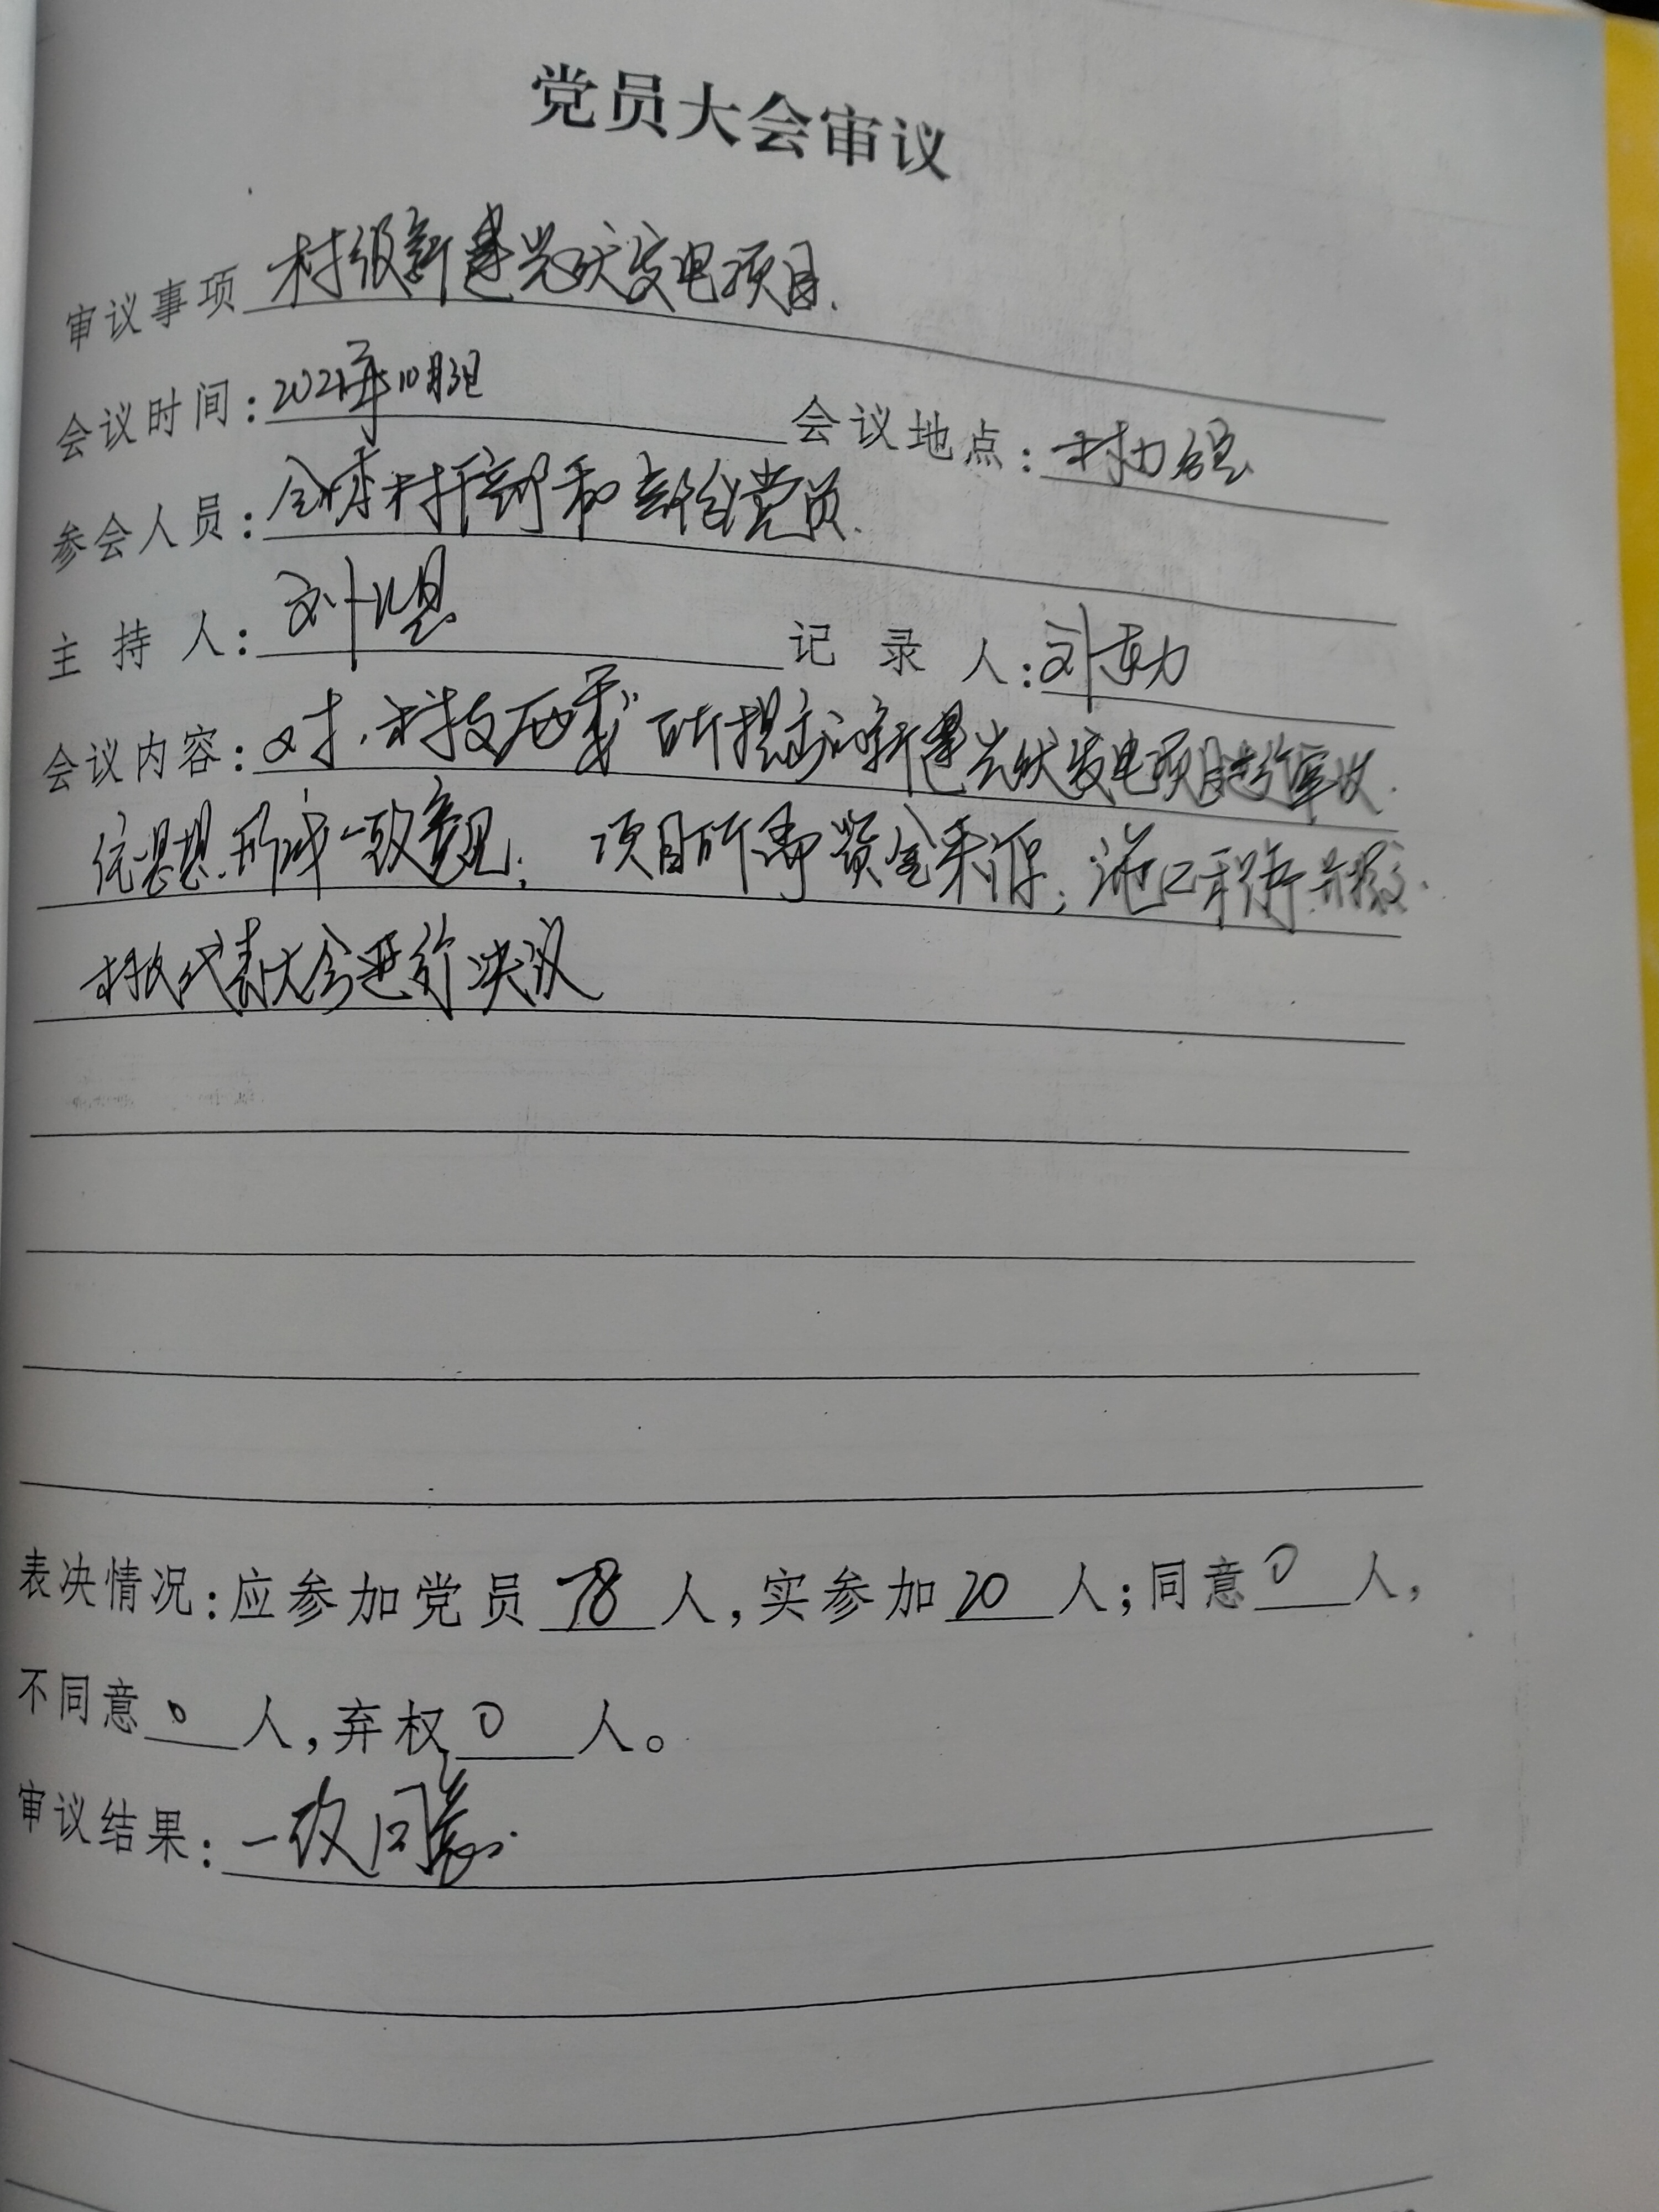 党员大会审议
审议事项 村级新建光伏发电项目.
会议时间: 2021年10月3日 会议地点: 村办公室
参会人员: 全体村干部和部份党员.
主持人: 刘 记录人: 刘
会议内容: 对.村支两委所提出的新建光伏发电项目进行审议.
统思想.形成一致意见; 项目所需资金来源; 施工程序
村民代表大会进行决议
表决情况:应参加党员 78 人,实参加 20 人;同意 0 人,
不同意 0 人,弃权 0 人。
审议结果: 一致同意.